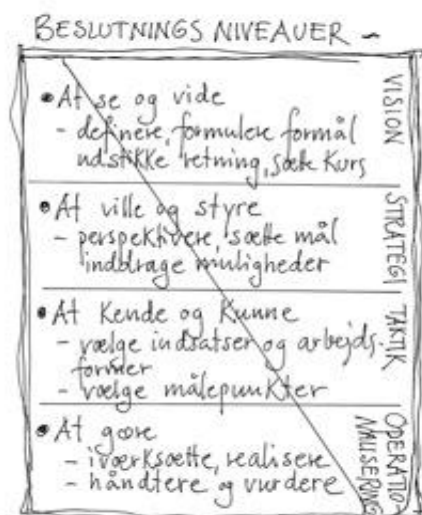 BESLUTNINGS NIVEAUER ~
• At se og vide
- definere, formulere formål
udstikke retning, sætte kurs
VISION
• At ville og styre
- perspektivere, sætte mål
inddrage muligheder
STRATEGI
• At kende og kunne
- vælge indsatser og arbejds-
former
- vælge målepunkter
TAKTIK
• At gøre
- iværksætte, realisere
- håndtere og vurdere
OPERATIO-
NALISERING